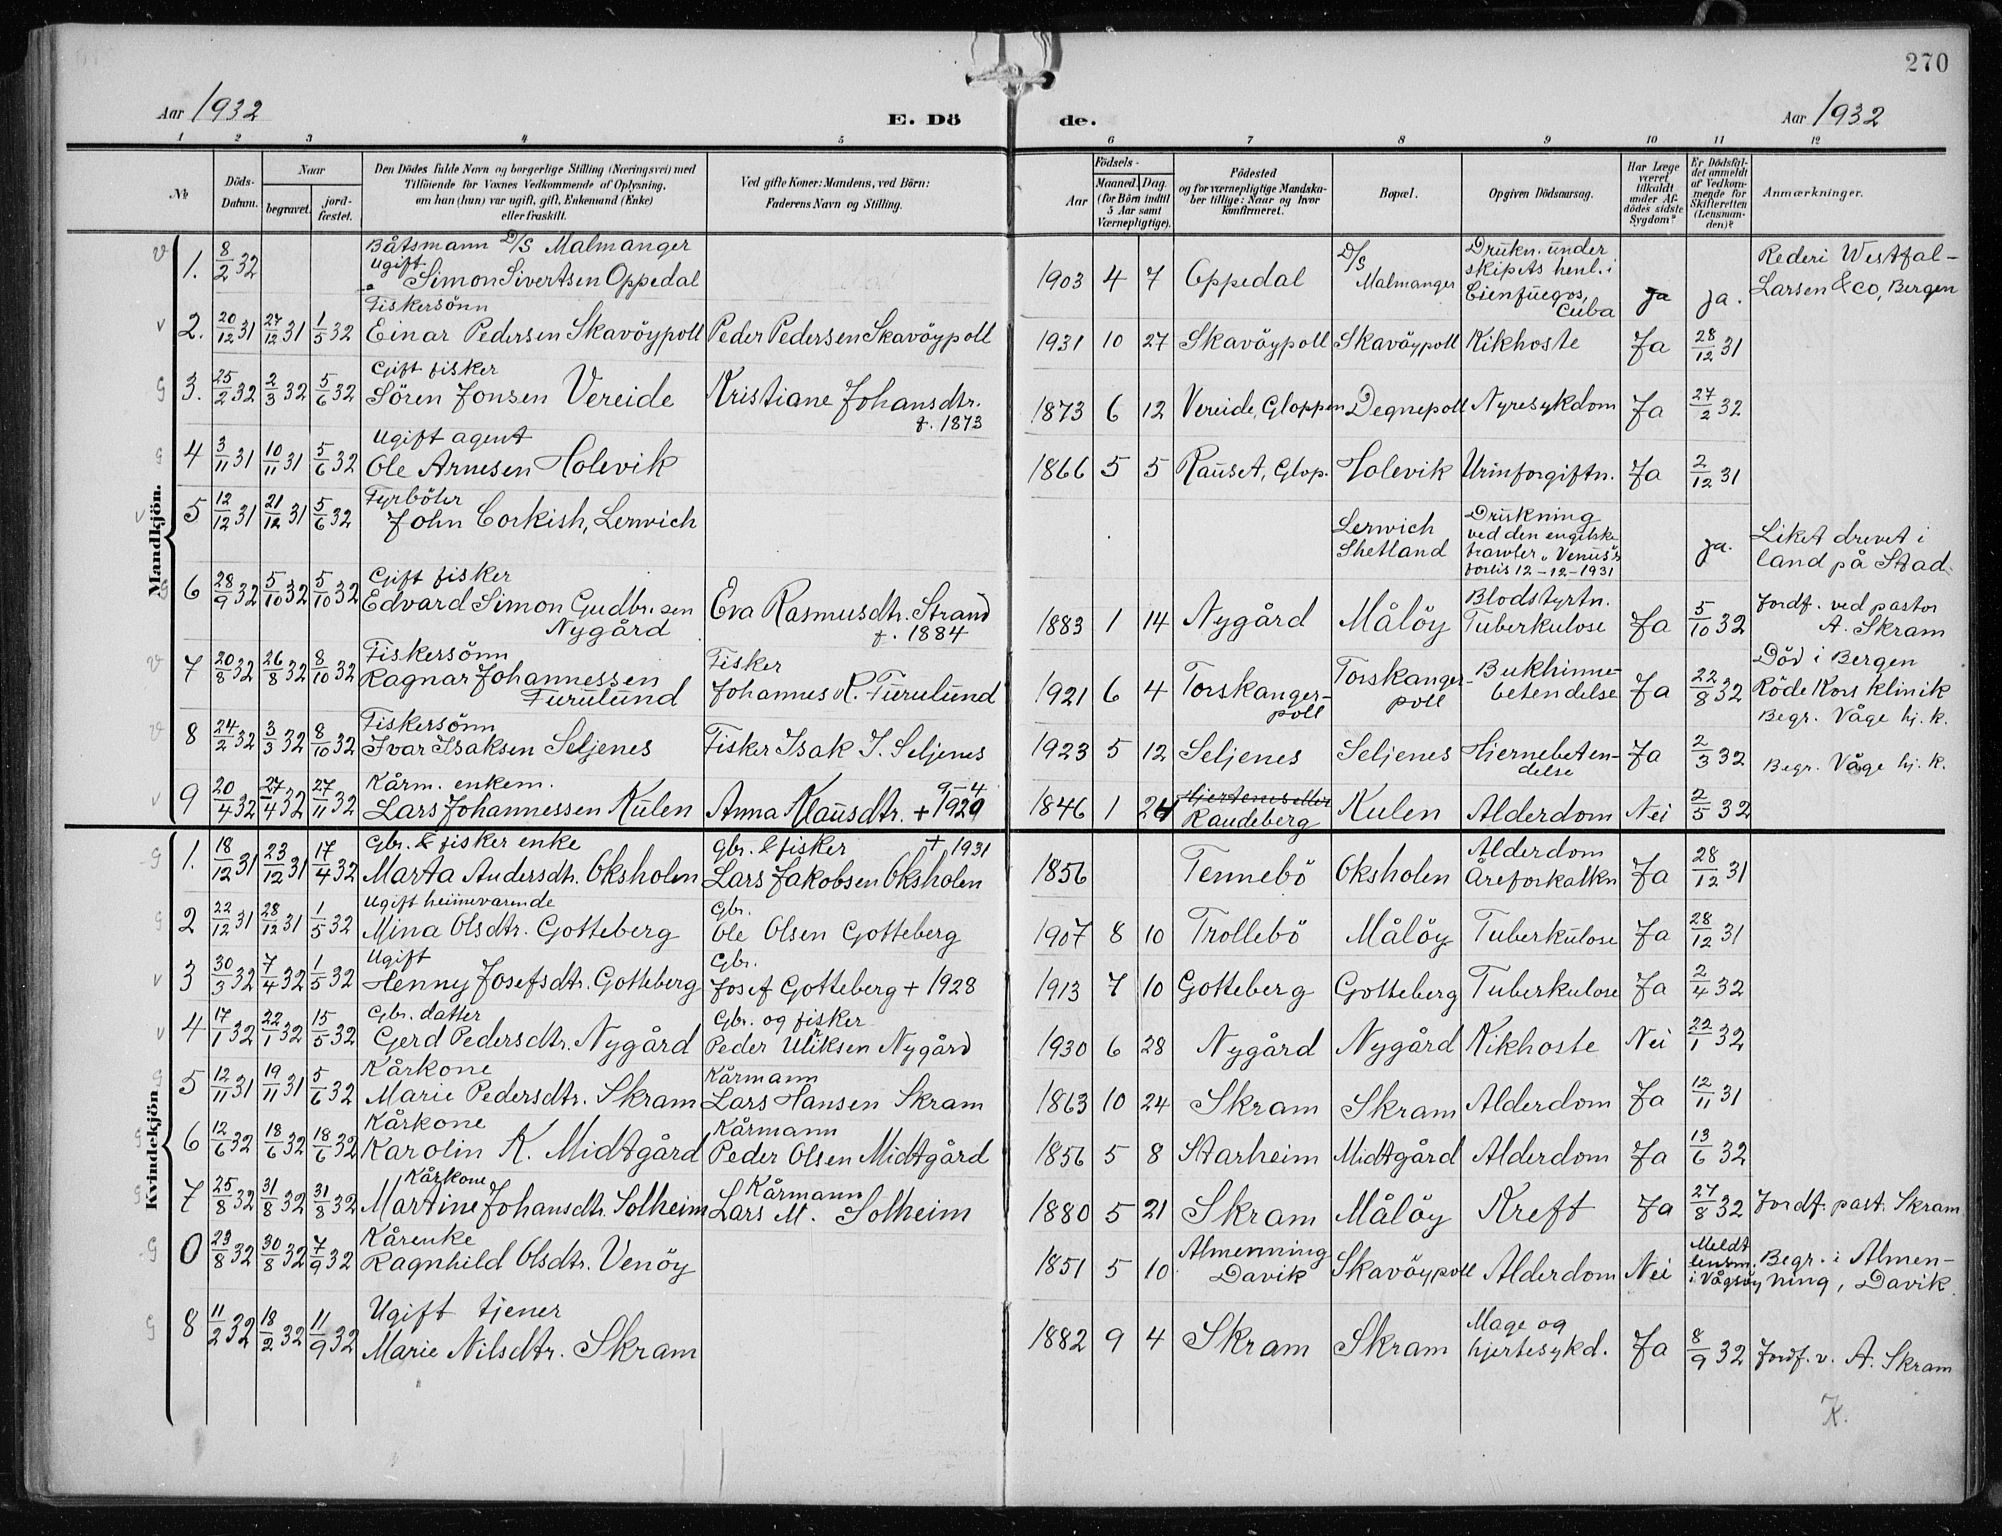 270
Aar 1932
E. Dö
de.
Aar 1932
1 2 3 4 5 6 7 8 9 10 11 12
№
Döds-Datum.
Naar
begravet.
jordfæstet.
Den Dödes fulde Navn og borgerlige Stilling (Næringsvei) med
Tilföiende for Voxnes Vedkommende af Oplysning,
om han (hun) var ugift, gift, Enkemand (Enke)
eller fraskilt.
Ved gifte Koner: Mandens, ved Börn:
Faderens Navn og Stilling.
Födsels-
Aar
Maaned. Dag.
(for Börn indtil
5 Aar samt
Værnepligtige).
Födested
og for værnepligtige Mandska-
ber tillige: Naar og hvor
konfirmeret.
Bopæl.
Opgiven Dödsaarsag.
Har Læge
været
tilkaldt
under Af-
dödes sidste
Sygdom?
Er Dödsfal-
det anmeldt
af Vedkom-
mende for
Skifteretten
(Lensman-
den)?
Anmærkninger.
Mandkjön.
1. 8/2 32 Båtsmann D/S Malmanger
Ugift
Simon Sivertsen Oppedal
1903 4 7 Oppedal D/S Malmanger Drukn. under
skipets henl. i
Cienfuegos,
Cuba
Ja ja.
Rederi Westfal-
Larsen & co, Bergen
2. 20/12 31 27/12 31 1/5 32 Fiskersönn
Einar Pedersen Skavöypoll Peder Pedersen Skavöypoll 1931 10 27 Skavöypoll Skavöypoll Kikhoste Ja 28/12 31
3. 25/2 32 2/3 32 5/6 32 Gift fisker
Sören Jonsen Vereide Kristiane Johansdtr.
f. 1873
1873 6 12 Vereide, Gloppen Degnepoll Nyresykdom Ja 27/2 32
4 3/11 31 10/11 31 5/6 32 Ugift agent
Ole Arnesen Holevik 1866 5 5 Rauset, Glop. Holevik Urinforgiftn. Ja 2/12 31
5 12/12 31 21/12 31 5/6 32 Fyrböter
John Corkish, Lerwich
Lerwich
Shetland
Drukning
ved den engelske
trawler "Venus's
forlis 12-12-1931
ja.
Liket drevet i
land på Stad.
6 28/9 32 5/10 32 5/10 32 Gift fisker
Edvard Simon Gudbr.sen
Nygård
Eva Rasmusdtr. Strand
f. 1884
1883 1 14 Nygård Målöy Blodstyrtn.
Tuberkulose Ja 5/10 32
Jordf. ved pastor
A. Skram
7 20/8 32 26/8 32 8/10 32 Fiskersönn
Ragnar Johannessen
Furulund
Fisker
Johannes R. Furulund
1921 6 4 Torskanger-
poll
Torskanger-
poll
Bukhinne-
betendelse Ja 22/8 32
Död i Bergen
Röde Kors klinik
Begr. Våge hj. k.
8 24/2 32 3/3 32 8/10 32 Fiskersönn
Ivar Isaksen Seljenes Fisker Isak J. Seljenes 1923 5 12 Seljenes Seljenes Hjernebeten-
delse
Ja 2/3 32 Begr. Våge hj. k.
9 20/4 32 27/4 32 27/11 32 Kårm. enkem.
Lars Johannessen Kulen Anna Klausdtr. + 9-4
1929
1846 1 24 Hjertenes eller
Raudeberg Kulen Alderdom Nei 2/5 32
Kvindekjön
1. 18/12 31 23/12 31 17/4 32 Gbr. & fisker enke
Marta Andersdtr. Oksholen
gbr. & fisker + 1931
Lars Jakobsen Oksholen
1856 Tennebö Oksholen Alderdom
Åreforkalkn Ja 28/12 31
2 22/12 31 28/12 31 1/5 32 Ugift heimeværende
Mina Olsdtr. Gotteberg
Gbr.
Ole Olsen Gotteberg
1907 8 10 Trollebö Målöy Tuberkulose Ja 28/12 31
3 30/3 32 7/4 32 1/5 32 Ugift
Henny Josefsdtr. Gotteberg
Gbr.
Josef Gotteberg + 1928
1913 7 10 Gotteberg Gotteberg Tuberkulose Ja 2/4 32
4 17/1 32 22/1 32 15/5 32 Gbr. datter
Gerd Pedersdtr. Nygård
Gbr. og fisker
Peder Ulriksen Nygård
1930 6 28 Nygård Nygård Kikhoste Nei 22/1 32
5 12/11 31 19/11 31 5/6 32 Kårkone
Marie Pedersdtr. Skram
Kårmann
Lars Hansen Skram
1863 10 24 Skram Skram Alderdom Ja 12/11 31
6 12/6 32 18/6 32 18/6 32 Kårkone
Karolin K. Midtgård
Kårmann
Peder Olsen Midtgård
1856 5 8 Starheim Midtgård Alderdom Ja 13/6 32
7 25/8 32 31/8 32 31/8 32 Kårkone
Martine Johansdtr. Solheim
Kårmann
Lars M. Solheim
1880 5 21 Skram Målöy Kreft Ja 27/8 32 Jordf. past. Skram
0 23/8 32 30/8 32 7/9 32 Kårenke
Ragnhild Olsdtr. Venöy
1851 5 10 Almenning
Davik
Skavöypoll Alderdom Nei Meldt
lensm.
i Vågsöy
Begr. i Almen-
ning, Davik.
8 11/2 32 18/2 32 11/9 32 Ugift tjener
Marie Nilsdtr. Skram
1882 9 4 Skram Skram Mage og
hjertesykd. Ja 8/9 32 Jordf. v. A. Skram
K.